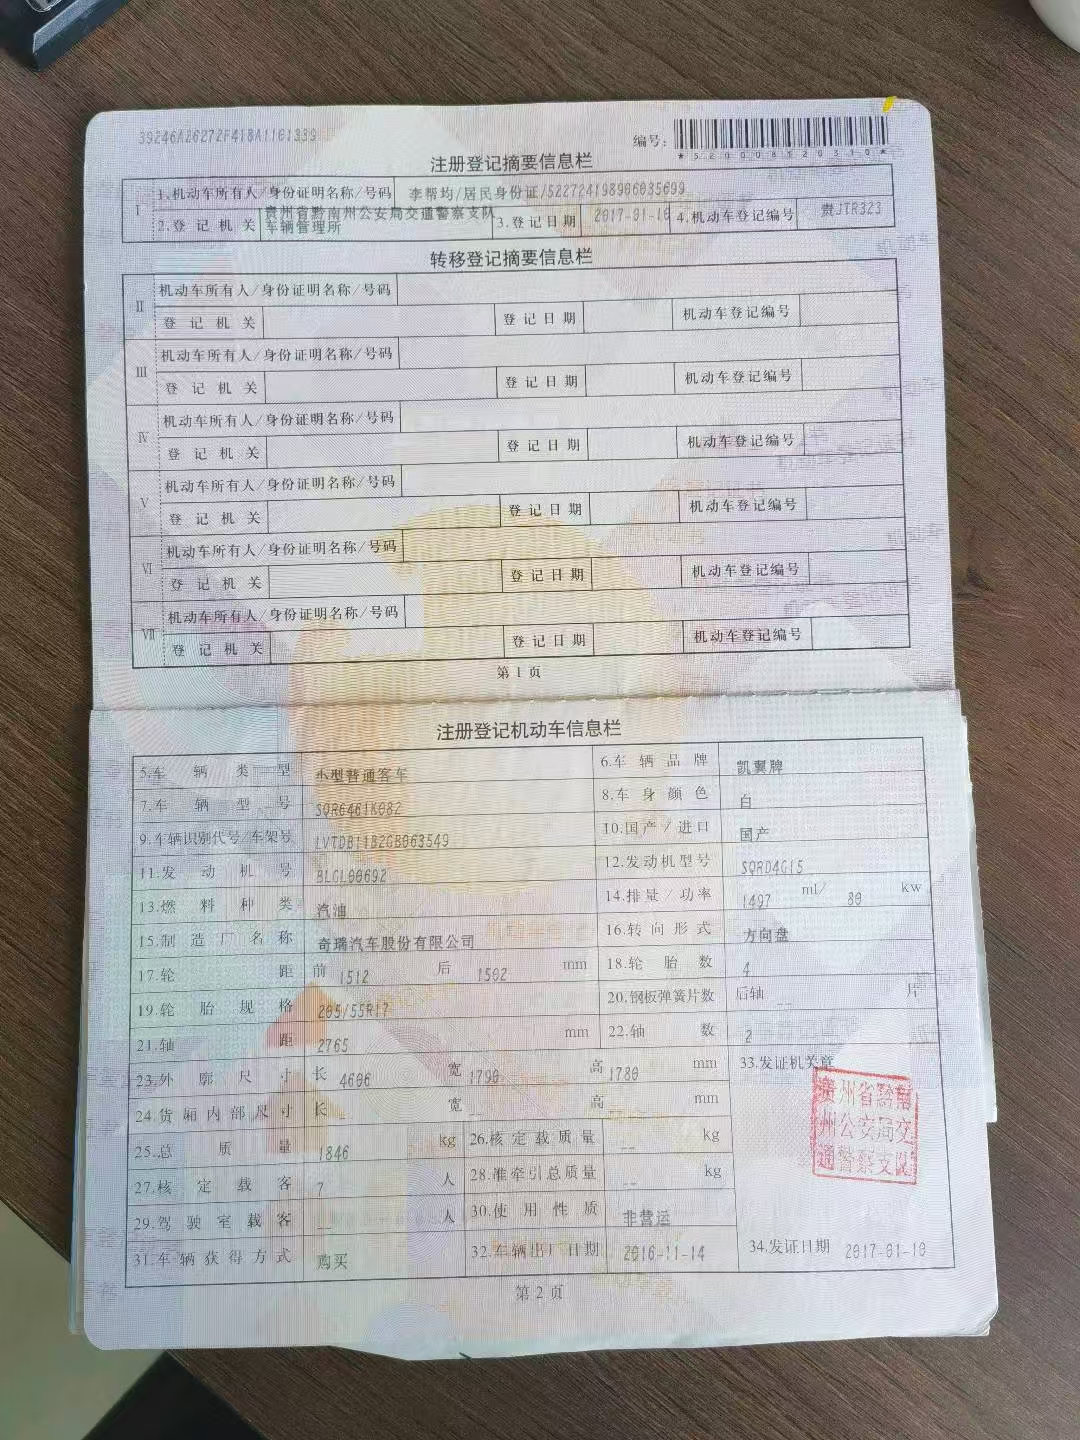 39246A26272F418A1161339
编号:
*520008520310*
注册登记摘要信息栏
Ⅰ 1.机动车所有人/身份证明名称/号码 李帮均/居民身份证/522724198906035699
2.登记机关 贵州省黔南州公安局交通警察支队车辆管理所 3.登记日期 2017-01-10 4.机动车登记编号 贵JTR323
转移登记摘要信息栏
Ⅱ 机动车所有人/身份证明名称/号码
登记机关 登记日期 机动车登记编号
Ⅲ 机动车所有人/身份证明名称/号码
登记机关 登记日期 机动车登记编号
Ⅳ 机动车所有人/身份证明名称/号码
登记机关 登记日期 机动车登记编号
Ⅴ 机动车所有人/身份证明名称/号码
登记机关 登记日期 机动车登记编号
Ⅵ 机动车所有人/身份证明名称/号码
登记机关 登记日期 机动车登记编号
Ⅶ 机动车所有人/身份证明名称/号码
登记机关 登记日期 机动车登记编号
第1页
注册登记机动车信息栏
5.车辆类型 小型普通客车 6.车辆品牌 凯翼牌
7.车辆型号 SQR6461K082 8.车身颜色 白
9.车辆识别代号/车架号 LVTDB11B2GB063549 10.国产/进口 国产
11.发动机号 BLGL00692 12.发动机型号 SQRD4G15
13.燃料种类 汽油 14.排量/功率 1497 ml/ 80 kw
15.制造厂名称 奇瑞汽车股份有限公司 16.转向形式 方向盘
17.轮距 前 1512 后 1502 mm 18.轮胎数 4
19.轮胎规格 205/55R17 20.钢板弹簧片数 后轴 -- 片
21.轴距 2765 mm 22.轴数 2
23.外廓尺寸 长 4606 宽 1790 高 1780 mm 33.发证机关章
24.货厢内部尺寸 长 -- 宽 -- 高 -- mm
25.总质量 1846 kg 26.核定载质量 -- kg
27.核定载客 7 人 28.准牵引总质量 -- kg
29.驾驶室载客 -- 人 30.使用性质 非营运
31.车辆获得方式 购买 32.车辆出厂日期 2016-11-14 34.发证日期 2017-01-10
贵州省黔南
州公安局交
通警察支队
第2页